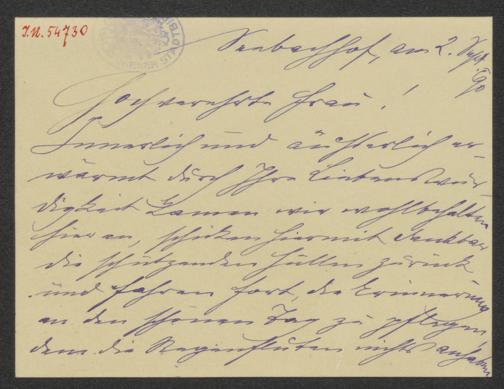 I.N. 54730
Seebachhof, am 2. Sept. 90
Hochverehrte Frau!
Innerlich und äußerlich er-
wärmt durch Ihre Liebenswür-
digkeit kamen wir wohlbehalten
hier an, schicken hiermit dankbar
die schützenden Hüllen zurück
und fahren fort, die Erinnerung
an den schönen Tag zu pflegen
dem die Regenfluten nichts anhaben